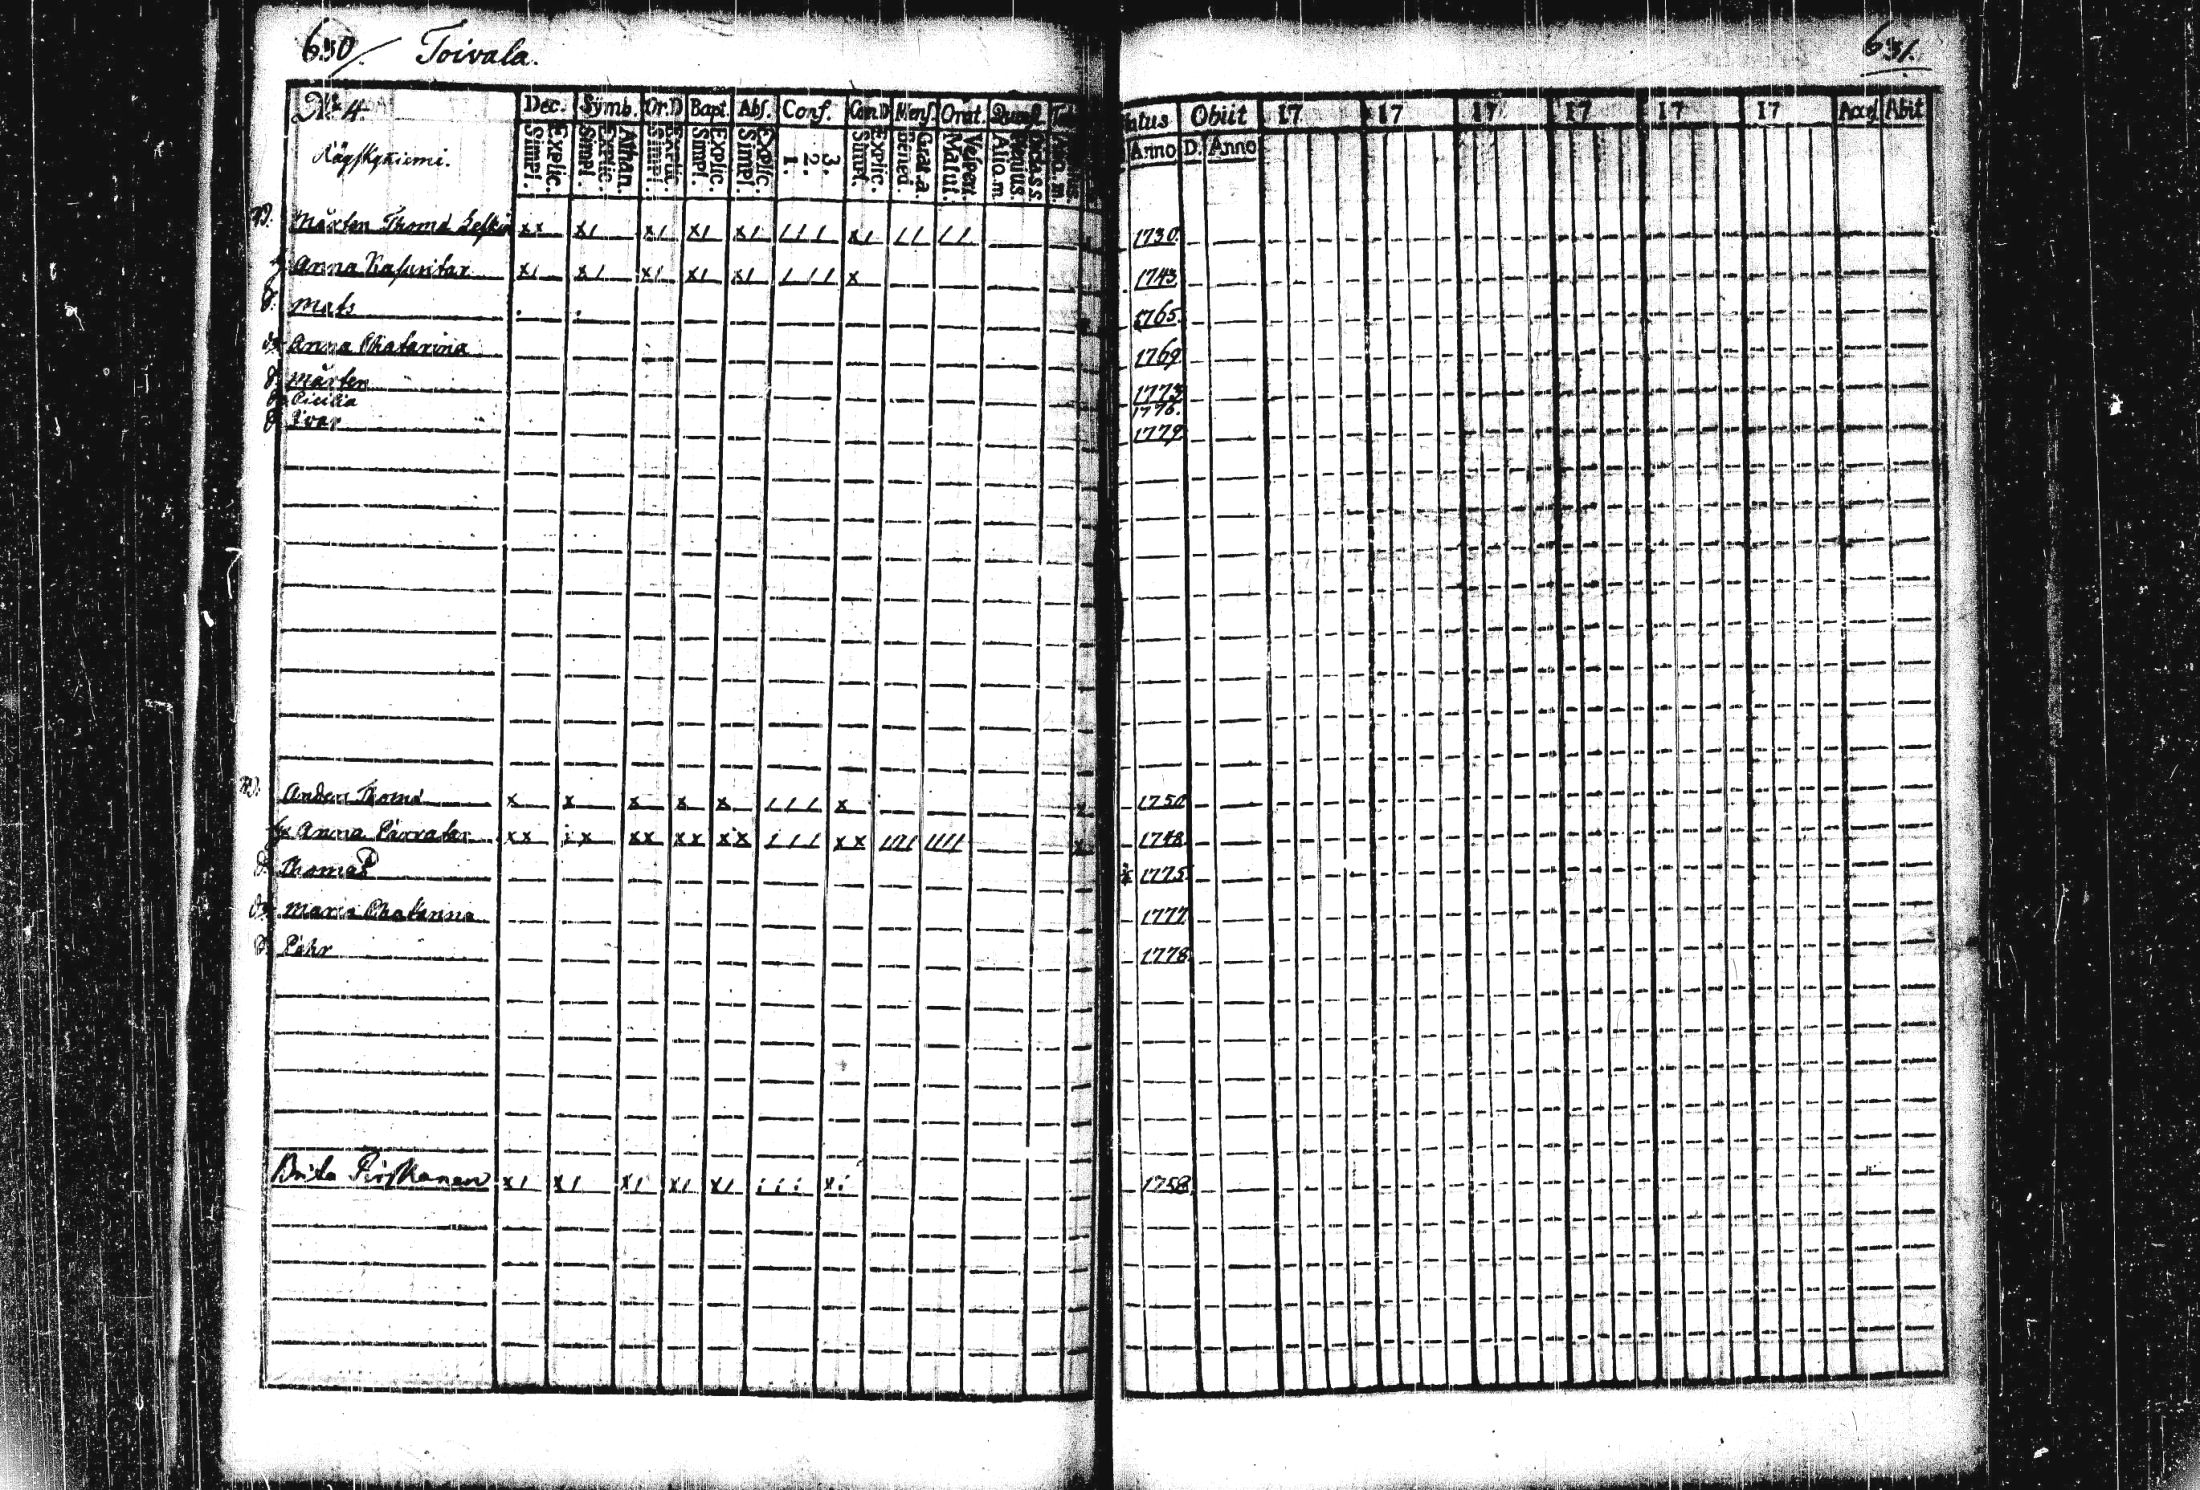 630/ Toivala.
631.
No 4.
Dec. Symb. Or.D Bapt. Abs. Conf. Cœn.D Mens. Orat. Quæst.
Explic. Simpl. Athan. Explic. Simpl. Explic. Simpl. Explic. Simpl. Explic. Simpl. 3. 2. 1. Explic. Simpl. Grat.a Bened. Vespert. Matut.
Natus Obiit 17 17 17 17 17 17 Acceſ Abit
Anno D. Anno
Mårten Thomæ xx x/ x/ x/ x/ / / / x/ / / / / 1730.
h. Anna x/ x/ x/ x/ x/ / / / x 1743
S. Mats 1765.
dr Anna Chatarina 1769
S. Mårten 1773
Cicilia 1776.
S. Ivar 1779
Anders Thomæ x x x x x / / / x 1750
hr Anna xx xx xx xx / / / xx //// //// 1748
S. Thomas 1775
dr Maria Chatarina 1777
S. Pehr 1778
Brita Pirskanen x/ x/ x/ x/ x/ 1758